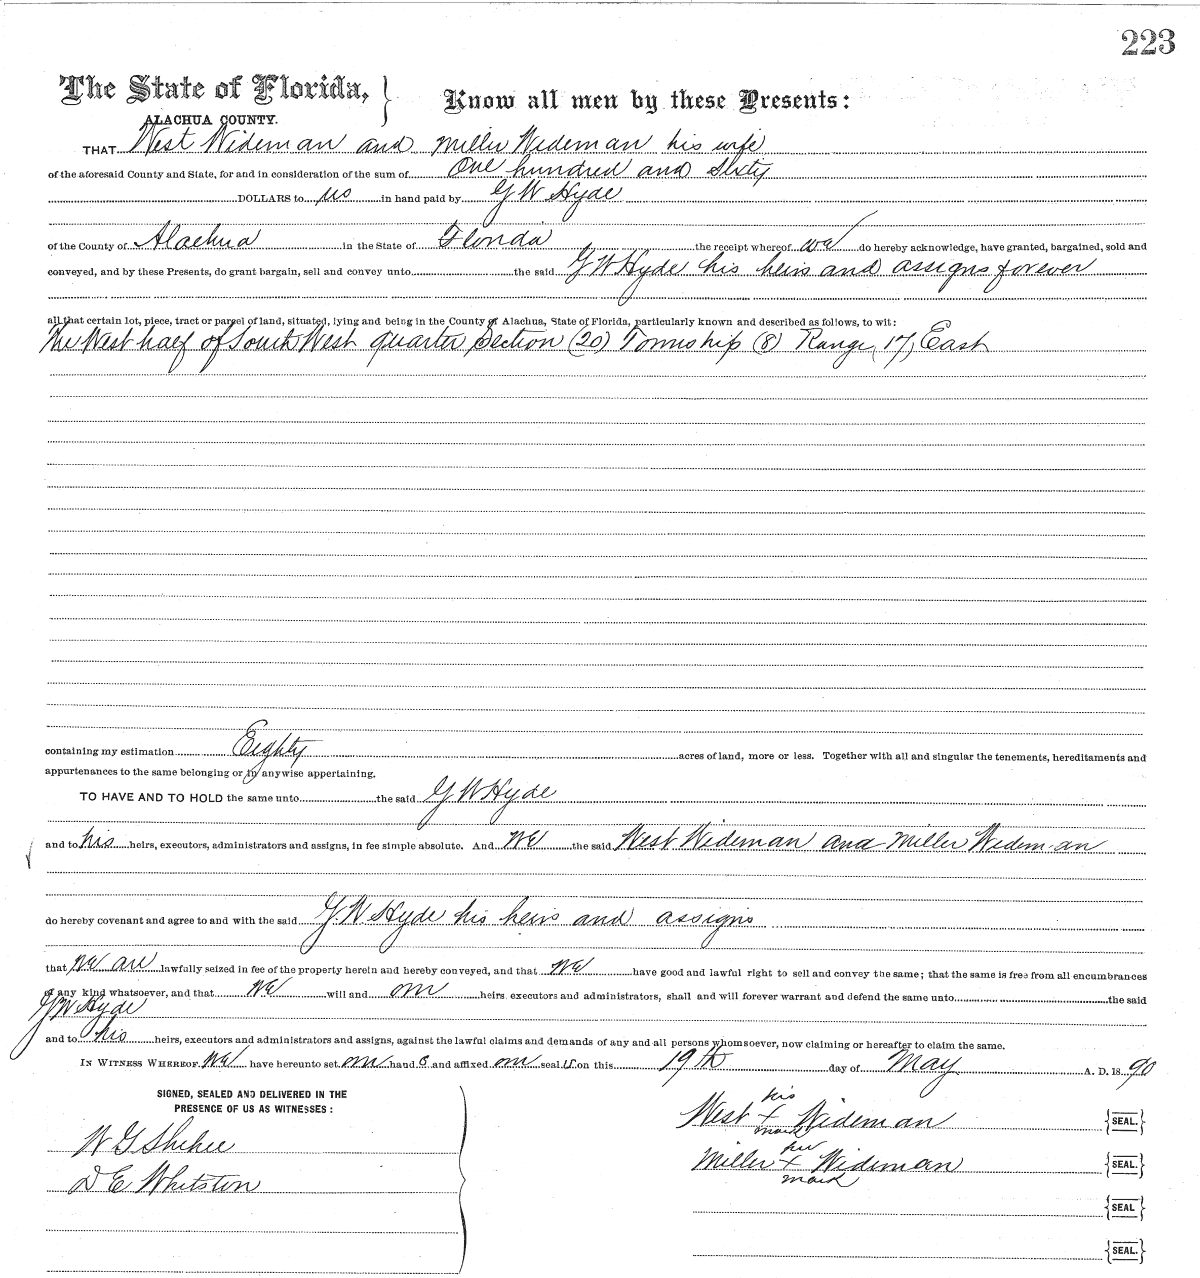 223
The State of Florida, } Know all men by these Presents:
ALACHUA COUNTY.
THAT West Wideman and Miller Wideman his wife
of the aforesaid County and State, for and in consideration of the sum of One hundred and Sixty
DOLLARS to us in hand paid by G W Hyde
of the County of Alachua in the State of Florida the receipt whereof we do hereby acknowledge, have granted, bargained, sold and
conveyed, and by these Presents, do grant bargain, sell and convey unto the said G W Hyde his heirs and assigns forever
all that certain lot, piece, tract or parcel of land, situated, lying and being in the County of Alachua, State of Florida, particularly known and described as follows, to wit:
The West half of South West quarter Section (20) Township (8) Range (17) East
containing my estimation Eighty acres of land, more or less. Together with all and singular the tenements, hereditaments and
appurtenances to the same belonging or in anywise appertaining.
TO HAVE AND TO HOLD the same unto the said G W Hyde
and to his heirs, executors, administrators and assigns, in fee simple absolute. And we the said West Wideman and Miller Wideman
do hereby covenant and agree to and with the said G. W. Hyde his heirs and assigns
that we are lawfully seized in fee of the property herein and hereby conveyed, and that we have good and lawful right to sell and convey the same; that the same is free from all encumbrances
of any kind whatsoever, and that we will and our heirs executors and administrators, shall and will forever warrant and defend the same unto the said
G W Hyde
and to his heirs, executors and administrators and assigns, against the lawful claims and demands of any and all persons whomsoever, now claiming or hereafter to claim the same.
IN WITNESS WHEREOF we have hereunto set our hands and affixed our seals on this 19th day of May A. D. 18 90
SIGNED, SEALED AND DELIVERED IN THE
PRESENCE OF US AS WITNESSES:
his
West x Wideman {SEAL.}
mark
W G Shehee
her
Miller x Wideman {SEAL.}
mark
D E Whetston
{SEAL}
{SEAL.}